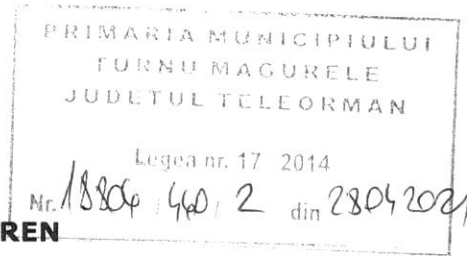 PRIMARIA MUNICIPIULUI
TURNU MAGURELE
JUDETUL TELEORMAN
Legea nr. 17 2014
Nr. 18804 / 460 / 2 din 28042021
REN